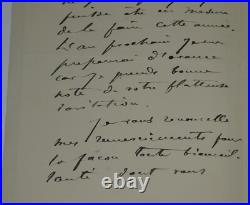 pu être en mesure
de le faire cette année.
L'an prochain je me
préparerai d'avance
car je prends bonne
note de votre flatteuse
invitation.
Je vous renouvelle
mes remerciements pour
la façon toute bienveil-
lante dont vous